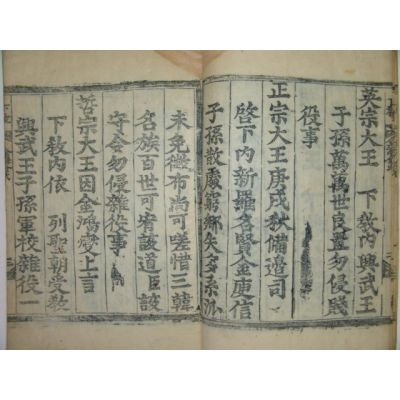 英宗大王 下敎內興武王
子孫萬萬世良置勿侵賤
役事
正宗大王庚戌秋備邊司
啓下內新羅名賢金庾信
子孫散處窮鄕失多系派
未免徵布尙可嗟惜三韓
名族百世可宥該道臣該
守令勿侵雜役事
哲宗大王因金鴻燮上言
下敎內依 列聖朝受敎
興武王子孫軍校雜役